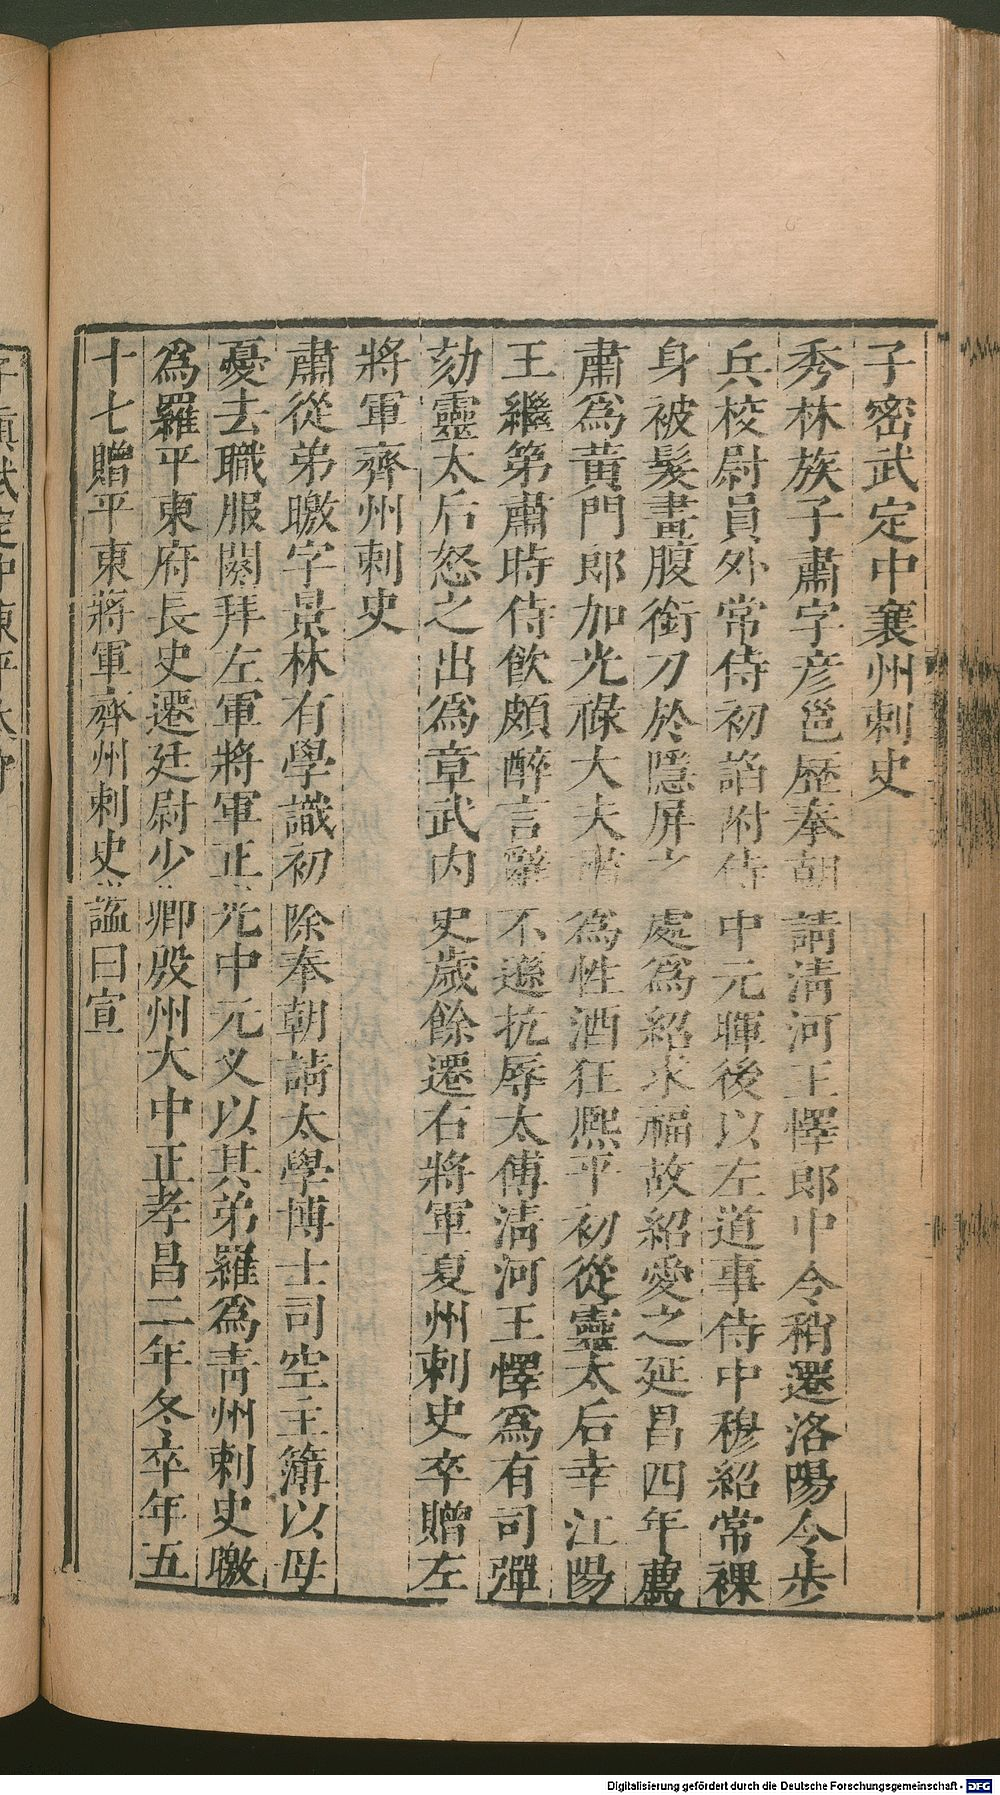 子密武定中襄州刺史
秀林族子肅字彦邕歷奉朝請淸河王懌郎中令稍遷洛陽令步
兵校尉員外常侍初諂附侍中元暉後以左道事侍中穆紹常裸
身被髮畫腹銜刀於隱屏之處爲紹求福故紹愛之延昌四年薦
肅爲黃門郎加光祿大夫肅爲性酒狂熙平初從靈太后幸江陽
王繼第肅時侍飮頗醉言辭不遜抗辱太傅淸河王懌爲有司彈
劾靈太后怒之出爲章武内史歲餘遷右將軍夏州刺史卒贈左
將軍齊州刺史
肅從弟暾字景林有學識初除奉朝請太學博士司空主簿以母
憂去職服闋拜左軍將軍正光中元义以其弟羅爲靑州刺史暾
爲羅平東府長史遷廷尉少卿殷州大中正孝昌二年冬卒年五
十七贈平東將軍齊州刺史謚曰宣
Digitalisierung gefördert durch die Deutsche Forschungsgemeinschaft - DFG